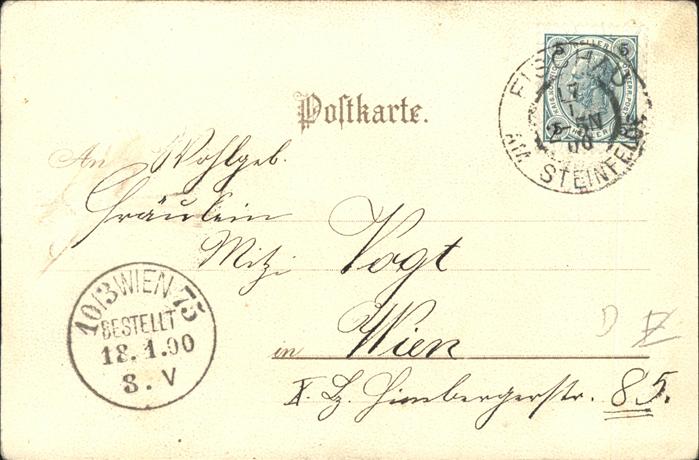 5 HELLER 5
FISCHAU
17
1
00
AM STEINFELDE
Postkarte.
An Wohlgeb.
Fräulein
Mitzi Vogt
in Wien
X. Bz. Himbergerstr. 85.
10/3 WIEN 75
BESTELLT
18.1.00
8.V
D Z